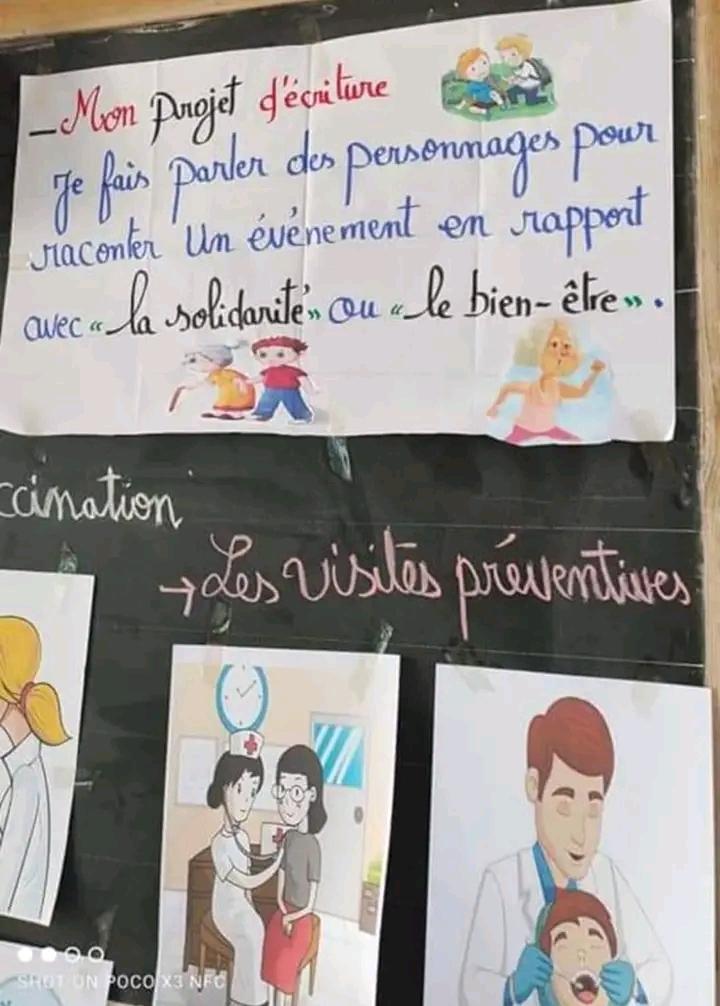 _Mon projet d'écriture
Je fais parler des personnages pour
raconter Un événement en rapport
avec « la solidarité » ou « le bien-être ».
ccination
→ Les visites préventives
SHOT ON POCO X3 NFC